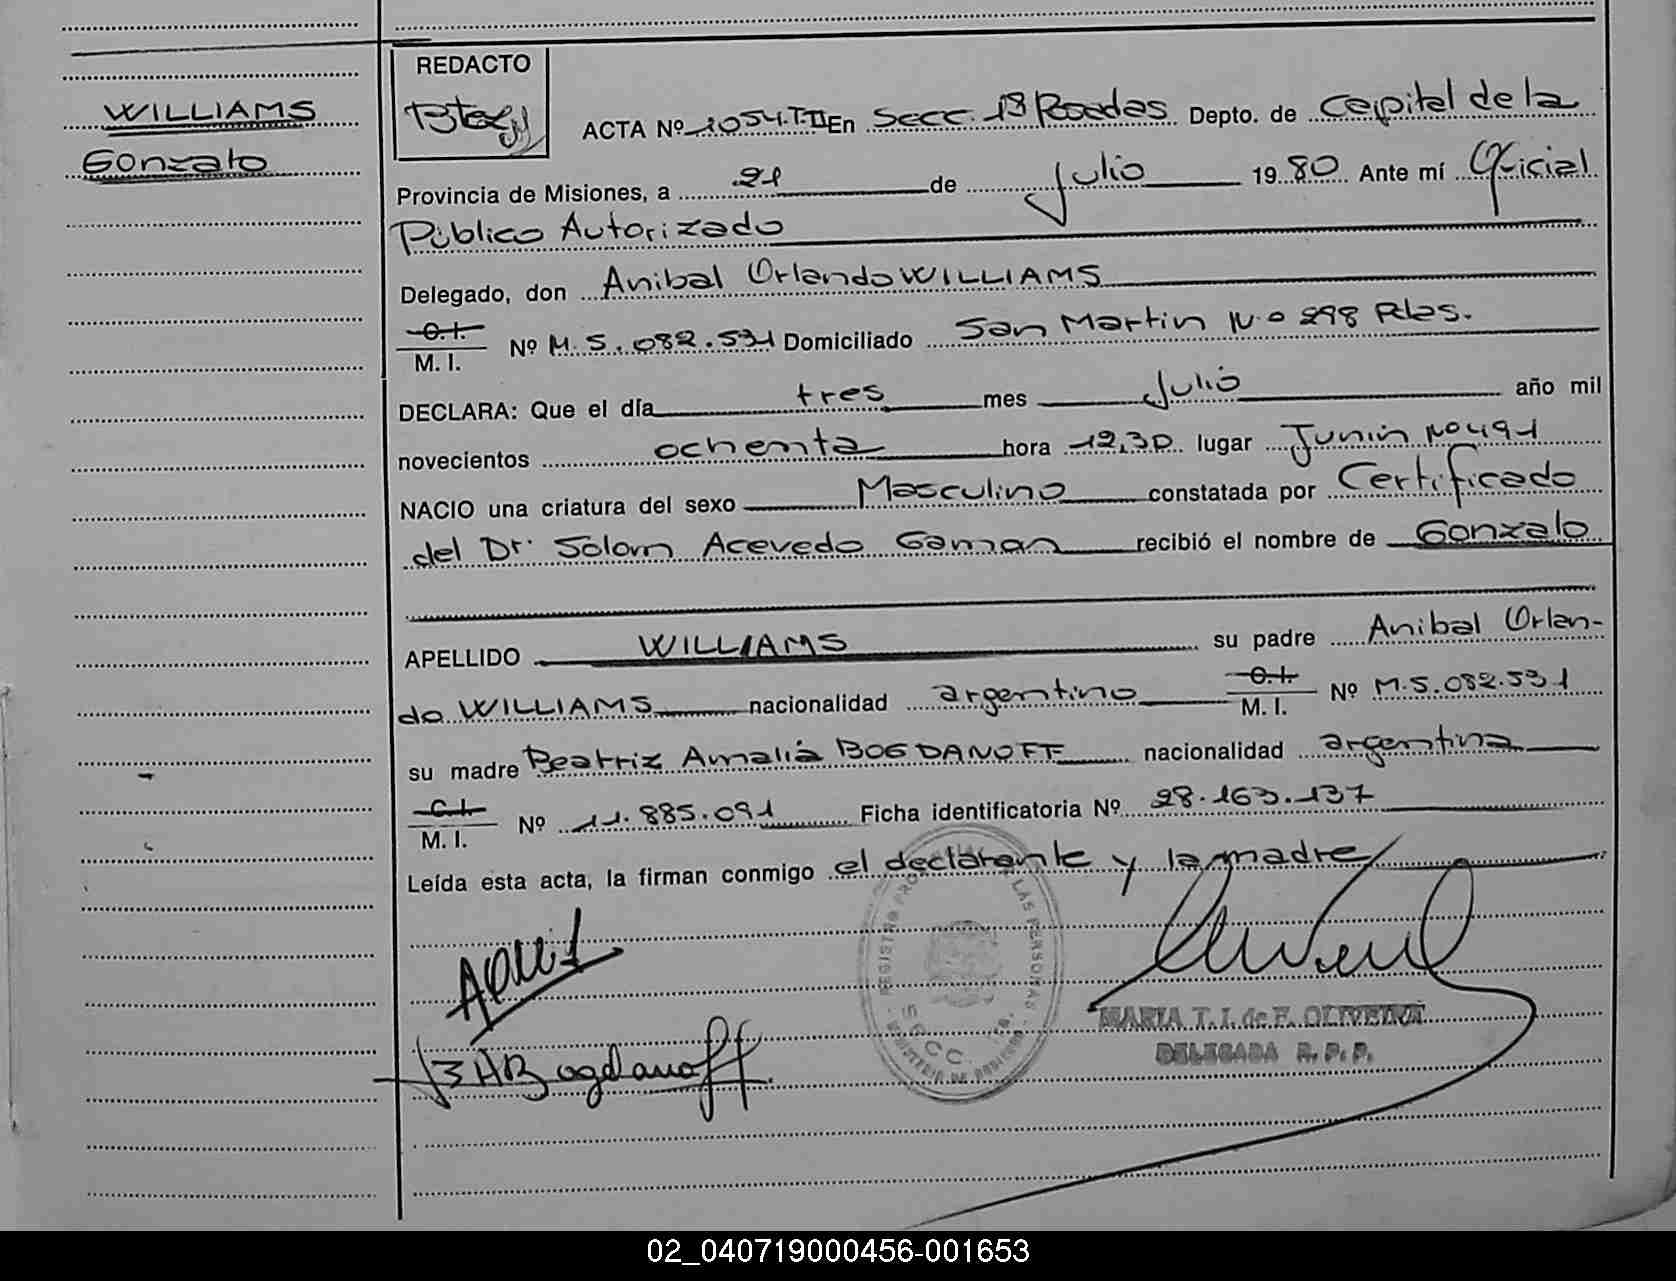 WILLIAMS
Gonzalo
REDACTO
ACTA Nº 1054.T.II En Secc. 1ª Posadas Depto. de Capital de la
Provincia de Misiones, a 21 de Julio 1980 Ante mí Oficial
Público Autorizado
Delegado, don Anibal Orlando WILLIAMS
C.I.
M. I. Nº M.5.082.531 Domiciliado San Martin N.º 298 Pdas.
DECLARA: Que el día tres mes Julio año mil
novecientos ochenta hora 12,30 lugar Junin Nº 491
NACIO una criatura del sexo Masculino constatada por Certificado
del Dr. Solom Acevedo Gaman recibió el nombre de Gonzalo
APELLIDO WILLIAMS su padre Anibal Orlan-
do WILLIAMS nacionalidad argentino C.I. M. I. Nº M.5.082.531
su madre Beatriz Amalia BOGDANOFF nacionalidad argentina
C.I.
M. I. Nº 11.885.091 Ficha identificatoria Nº 28.163.137
Leída esta acta, la firman conmigo el declarante y la madre
REGISTRO DE LAS PERSONAS
SECC. 1ª
MARIA T. I. de F. OLIVEIRA
DELEGADA R. P. P.
BABogdanoff
02_040719000456-001653